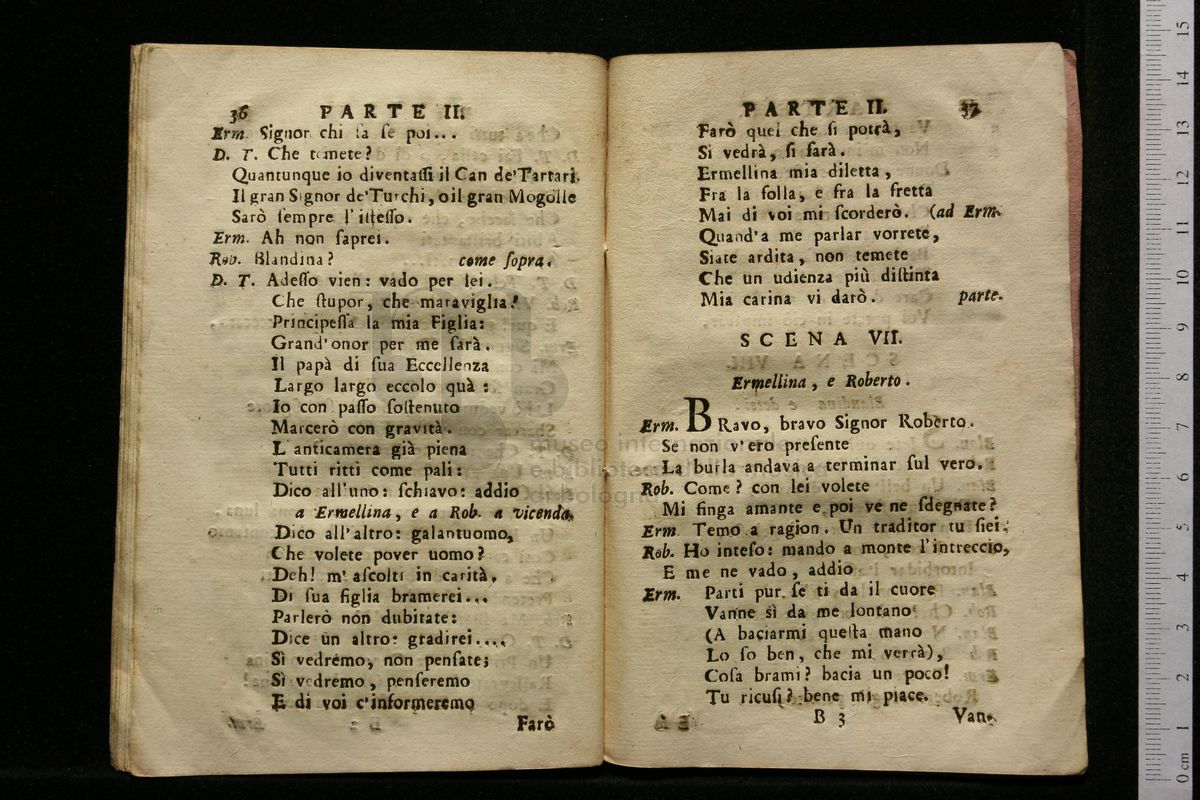 36 PARTE II.
Erm. Signor chi sa se poi...
D. T. Che temete?
Quantunque io diventassi il Can de'Tartari.
Il gran Signor de'Turchi, o il gran Mogolle
Sarò sempre l'istesso.
Erm. Ah non saprei.
Rob. Blandina? come sopra.
D. T. Adesso vien: vado per lei.
Che stupor, che maraviglia!
Principessa la mia Figlia:
Grand'onor per me sarà.
Il papà di sua Eccellenza
Largo largo eccolo quà:
Io con passo sostenuto
Marcerò con gravità.
L'anticamera già piena
Tutti ritti come pali:
Dico all'uno: schiavo: addio
a Ermellina, e a Rob. a vicenda.
Dico all'altro: galantuomo,
Che volete pover uomo?
Deh! m'ascolti in carità,
Di sua figlia bramerei...
Parlerò non dubitate:
Dice un altro: gradirei....
Sì vedremo, non pensate;
Sì vedremo, penseremo
E di voi c'informeremo
Farò
PARTE II. 37
Farò quel che si potrà,
Si vedrà, si sarà.
Ermellina mia diletta,
Fra la folla, e fra la fretta
Mai di voi mi scorderò. (ad Erm.
Quand'a me parlar vorrete,
Siate ardita, non temete
Che un udienza più distinta
Mia carina vi darò. parte.
SCENA VII.
Ermellina, e Roberto.
Erm. BRavo, bravo Signor Roberto.
Se non v'ero presente
La burla andava a terminar sul vero.
Rob. Come? con lei volete
Mi finga amante e poi ve ne sdegnate?
Erm. Temo a ragion. Un traditor tu siei.
Rob. Ho inteso: mando a monte l'intreccio,
E me ne vado, addio
Erm. Parti pur se ti da il cuore
Vanne sì da me lontano
(A baciarmi questa mano
Lo so ben, che mi verrà),
Cosa brami? bacia un poco!
Tu ricusi? bene mi piace.
B 3 Van-
museo internazionale
e biblioteca della musica
di bologna